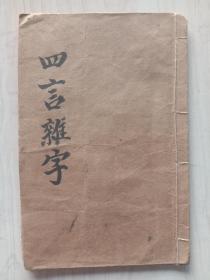 四言雜字